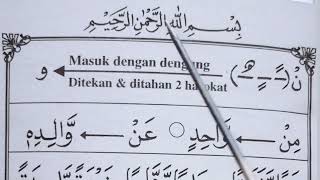 بِسْمِ اللهِ الرَّحْمٰنِ الرَّحِيْمِ
نْ (ـًـ ـٍـ ـٌـ) Masuk dengan dengung و
Ditekan & ditahan 2 harokat
مِنْ وَّاحِدٍ عَنْ وَّالِدِهٖ